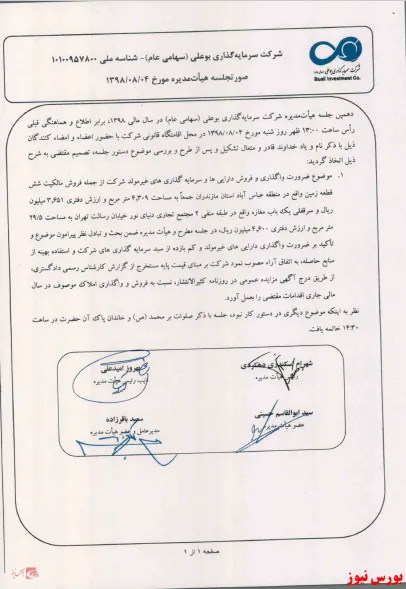 شرکت سرمایه‌گذاری بوعلی (سهامی عام) - شناسه ملی ۱۰۱۰۰۹۵۷۸۰۰
صورتجلسه هیأت‌مدیره مورخ ۱۳۹۸/۰۸/۰۴
Buali Investment Co.
دهمین جلسه هیأت‌مدیره شرکت سرمایه‌گذاری بوعلی (سهامی عام) در سال مالی ۱۳۹۸، برابر اطلاع و هماهنگی قبلی
رأس ساعت ۱۳:۰۰ ظهر روز شنبه مورخ ۱۳۹۸/۰۸/۰۴ در محل اقامتگاه قانونی شرکت با حضور اعضاء و امضاء کنندگان
ذیل با ذکر نام و یاد خداوند قادر و متعال تشکیل و پس از طرح و بررسی موضوع دستور جلسه، تصمیم مقتضی به شرح
ذیل اتخاذ گردید:
۱. موضوع ضرورت واگذاری و فروش دارایی ها و سرمایه گذاری های غیرمولد شرکت از جمله فروش مالکیت شش
قطعه زمین واقع در منطقه عباس آباد استان مازندران جمعاً به مساحت ۴,۳۰۹ متر مربع و ارزش دفتری ۳,۶۵۱ میلیون
ریال و سرقفلی یک باب مغازه واقع در طبقه منفی ۲ مجتمع تجاری دنیای نور خیابان رسالت تهران به مساحت ۲۹/۵
متر مربع و ارزش دفتری ۴,۶۰۰ میلیون ریال، در جلسه مطرح و هیأت مدیره ضمن بحث و تبادل نظر پیرامون موضوع و
تأکید بر ضرورت واگذاری دارایی های غیرمولد و کم بازده از سبد سرمایه گذاری های شرکت و استفاده بهینه از
منابع حاصله، به اتفاق آراء مصوب نمود شرکت بر مبنای قیمت پایه مستخرج از گزارش کارشناس رسمی دادگستری،
از طریق درج آگهی مزایده عمومی در روزنامه کثیرالانتشار، نسبت به فروش و واگذاری املاک موصوف در سال
مالی جاری اقدامات مقتضی را بعمل آورد.
نظر به اینکه موضوع دیگری در دستور کار نبود، جلسه با ذکر صلوات بر محمد (ص) و خاندان پاک آن حضرت در ساعت
۱۴:۳۰ خاتمه یافت.
شهرام اسکندری
رئیس هیأت مدیره
بهروز امیدعلی
نایب رئیس هیأت مدیره
سید ابوالقاسم حسینی
عضو هیأت مدیره
سعید باقرزاده
مدیرعامل و عضو هیأت مدیره
صفحه ۱ از ۱
بورس نیوز